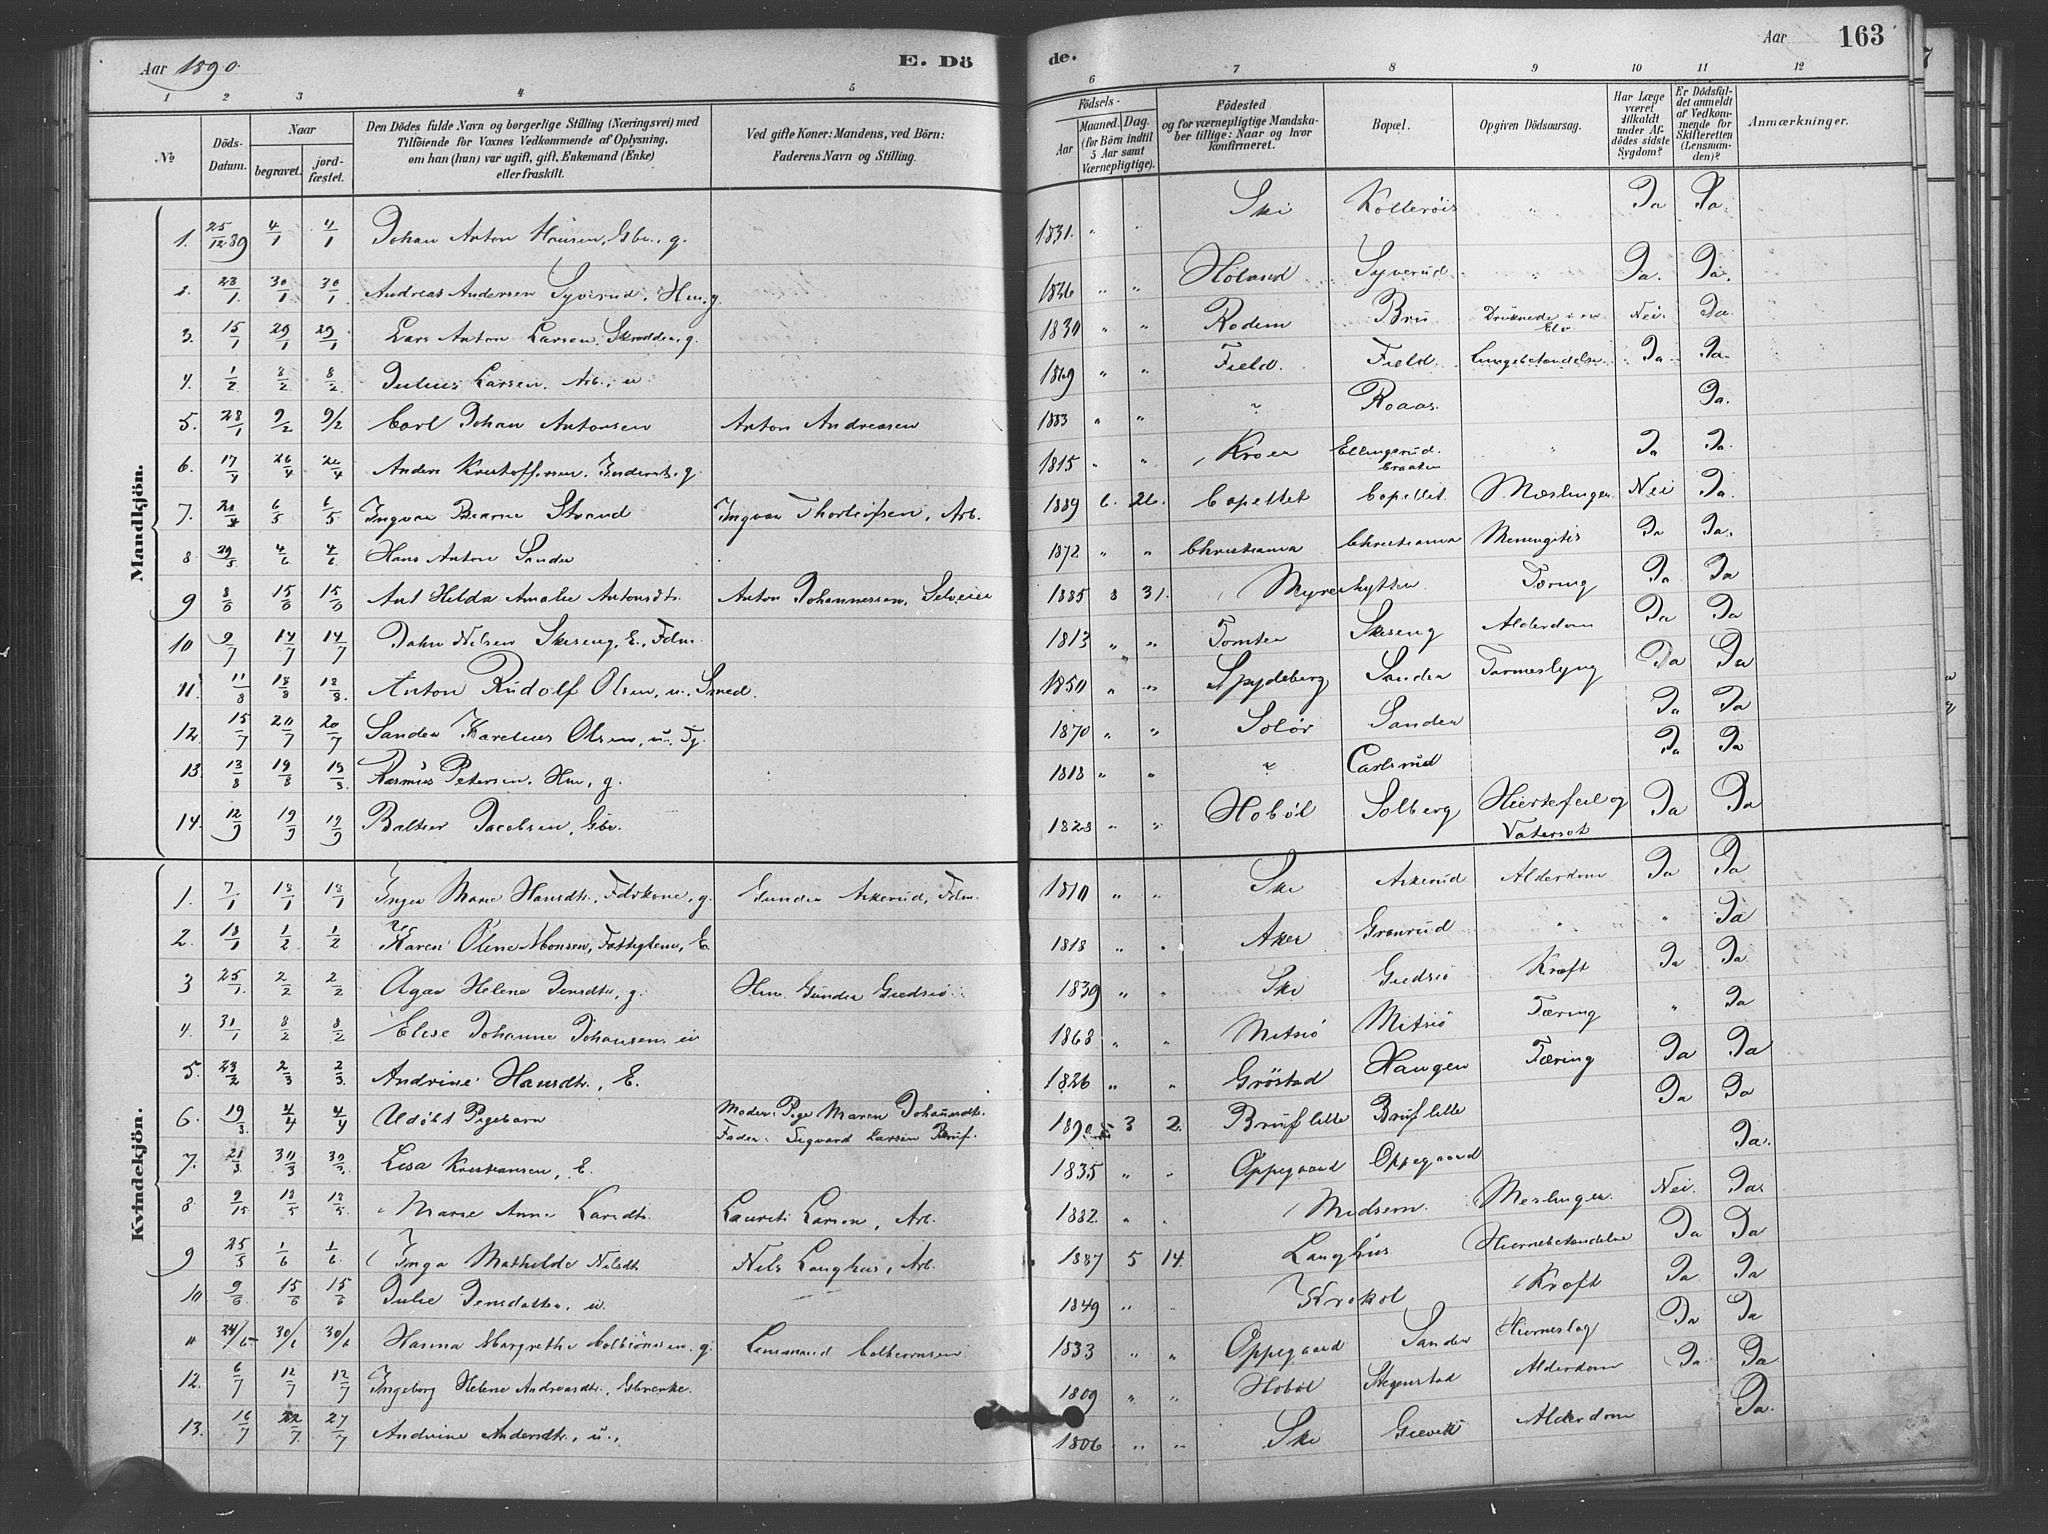 Aar 1890. E. Dö
de. Aar 163
1 2 3 4 5 6 7 8 9 10 11 12
No
Döds-Datum.
Naar
begravet.
jord-fæstet.
Den Dödes fulde Navn og borgerlige Stilling (Næringsvei) med
Tilföiende for Voxnes Vedkommende af Oplysning,
om han (hun) var ugift, gift, Enkemand (Enke)
eller fraskilt.
Ved gifte Koner: Mandens, ved Börn:
Faderens Navn og Stilling.
Födsels-
Aar
Maaned. Dag.
(for Börn indtil
5 Aar samt
Værnepligtige).
Födested
og for værnepligtige Mandska-
ber tillige: Naar og hvor
konfirmeret.
Bopæl.
Opgiven Dödsaarsag.
Har Læge
været
tilkaldt
under Af-
dödes sidste
Sygdom?
Er Dödsfal-
det anmeldt
af Vedkom-
mende for
Skifteretten
(Lensman-
den)?
Anmærkninger.
Mandkjön.
1. 25/12 89 4/1 4/1 Johan Anton Hansen, Gbr., g. 1831. " " Ski " Ja Ja
2. 23/1 30/1 30/1 Andreas Andersen Syverud, Hm, g. 1826 " " Syverud " Ja. Ja.
3. 15/1 29/1 29/1 Lars Anton Larsen, Skrædder, g. 1830 " " Rodem Bru Druknede i en Elv Nei. Ja.
4. 1/2 8/2 8/2 Julius Larsen, Arb., u. 1869 " " Field. Field. Lungebetændelse Ja. Ja.
5. 28/1 9/2 9/2 Carl Johan Antonsen Anton Andreasen 1883 " " " Roaas. Ja.
6. 17/4 26/4 26/4 Anders Kristoffersen, Inderst, g. 1815 " " Kroer Ellingsrud Braaten " Ja Ja.
7. 6/5 6/5 Ingvar Bjarne Strand Ingvar Thorleifsen, Arb. 1889 6. 26. Capellet Capellet. Mæslinger Nei Ja.
8 29/5 4/6 4/6 Hans Anton Sander 1872 " " Christiania Christiania Meningitis Ja Ja.
9 8/6 15/6 15/6 Ant Hilda Amalie Antonsdtr. Anton Johannessen, Selveier 1885 8 31. Myrerhytten Tæring Ja Ja
10 9/7 14/7 14/7 John Nilsen Skiseng, E., Fdm. 1813 " " Tomter Skiseng Alderdom Ja Ja
11. 11/8 18/8 18/8 Anton Rudolf Olsen, u., Smed. 1850 " " Spydeberg Sander Tarmeslyng Ja Ja
12. 15/7 20/7 20/7 Sander Karelius Olsen, u., Tj. 1870 " " Solør Sander Ja Ja
13. 13/8 19/8 19/8 Rasmus Petersen, Hm, g. 1818 " " " Carlsrud Ja Ja
14. 12/9 19/9 19/9 Baltser Jacobsen, Gbr. 1828 " " Hobøl Solberg Hjertefeil og Vatersot Ja Ja
Kvindekjön.
1. 7/1 18/1 18/1 Inger Marie Hansdtr., Fdrkone, g. Gunder Askerud, Fdm. 1810 " " Ski Askerud Alderdom Ja Ja
2. 18/1 1/2 1/2 Karen Oline Monsen, Fattiglem, E. 1818 " " Aker Granrud " " Ja
3 25/1. 2/2 2/2 Agar Helene Jensdtr, g. Hm. Gunder Gjedsiø. 1839 " " Ski Gjedsiø Kræft Ja Ja
4. 31/1 8/2 8/2 Elise Johanne Johansen, u 1863 " " Mitsiø Mitsiø Tæring " Ja
5. 23/2 2/3 2/3. Andrine Hansdtr., E. 1826 " " Grøstad Haugen Tæring Ja Ja
6. 19/3. 4/4 4/4 Udøbt Pigebarn Moder: Pige Maren Johansdtr. Fader: Sigvard Larsen Bruf. 1890 3 2. Bruf lille Bruf lille Ja Ja
7. 21/3 30/3 30/3. Lisa Kristiansen, E. 1835 " " Oppegaard Oppegaard Ja.
8 18/5 18/5. Marie Anne Larsdtr. Laurits Larsen, Arb. 1882. " " Midsem. Meslinger. Nei. Ja.
9 25/5 1/6 1/6. Inga Mathilde Nilsdtr. Nils Langhus, Arb. 1887 5 14. Langhus Hjernebetændelse Ja Ja
10 9/6 15/6 15/6 Julie Jensdatter, u. 1849 " " Krokol Kræft Ja Ja
11 24/5 30/6 30/6 Hanna Margrethe Colbiørnsen, g. Lensmand Colbiørnsen 1833 " " Oppegaard Sander Hjerneslag Ja Ja
12. 6/7 12/7 12/7 Ingeborg Helene Andreasdtr., Gbrenke. 1809 " " Hobøl Stegenstad Alderdom Ja. Ja
13. 16/7 22/7. 27/7 Andrine Andersdtr., u., 1806 " " Ski Gjevik Alderdom Ja.